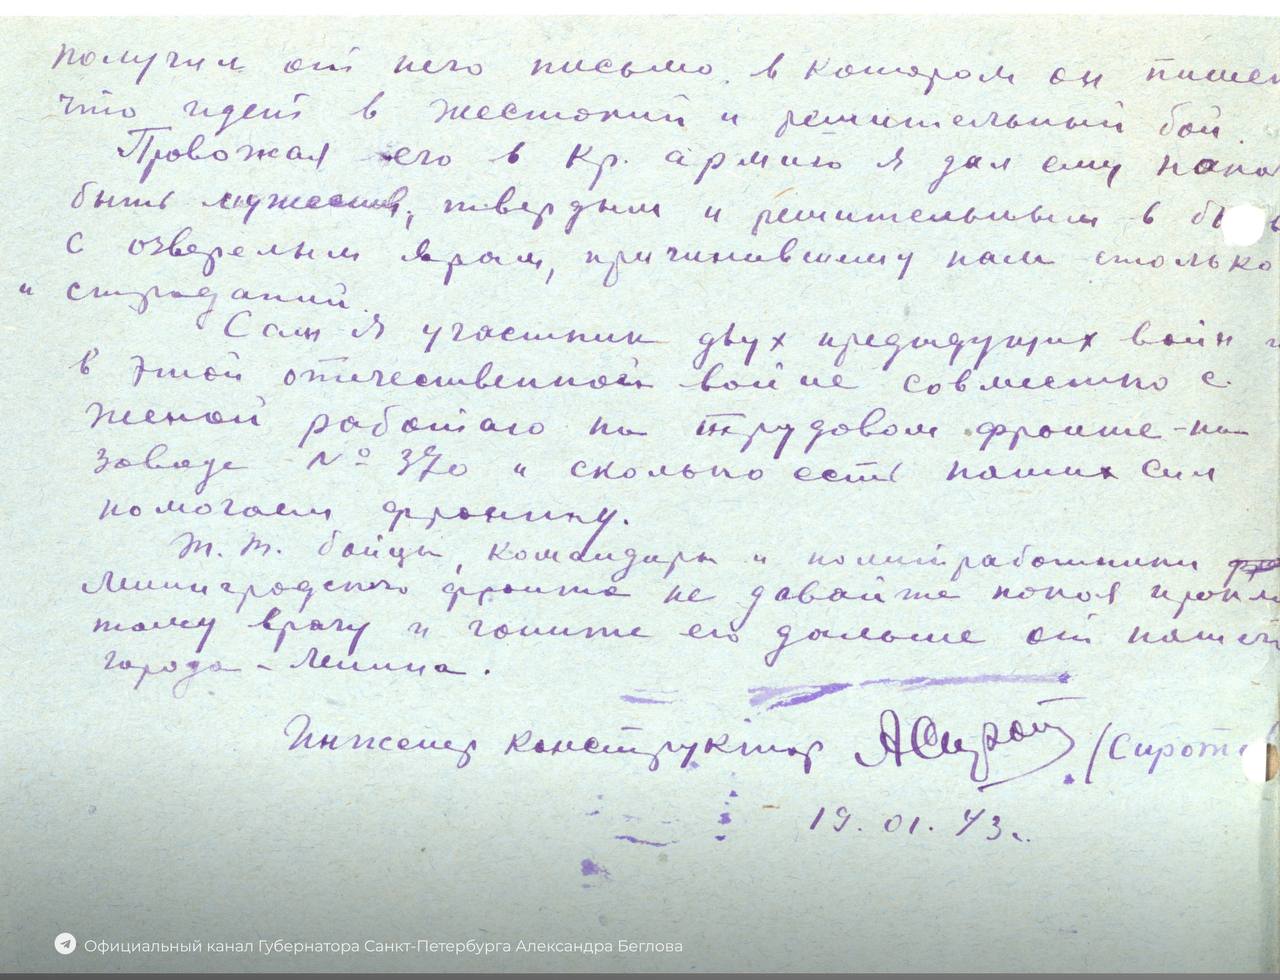 получил от него письмо, в котором он пишет
что идет в жестокий и решительный бой.
Провожая его в Кр. армию я дал ему нака
быть мужеств, твердым и решительным в б
с озверелым врагом, причинившему нам столько
и страданий.
Сам я участник двух предыдущих войн и
в этой отечественной войне совместно с
женой работаю на трудовом фронте - на
заводе № 370 и сколько есть наших сил
помогаем фронту.
Т.т. бойцы, командиры и политработники
Ленинградского фронта не давайте покоя прокля
тому врагу и гоните его дальше от нашего
города - Ленина.
Инженер конструктор АСирот (Сирот
19.01.43г.
Официальный канал Губернатора Санкт-Петербурга Александра Беглова